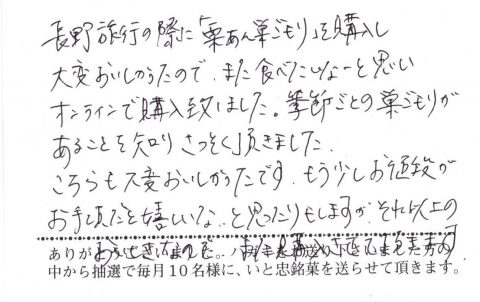 長野旅行の際に「栗あん巣ごもり」を購入し
大変おいしかったので、また食べたいなーと思い
オンラインで購入致しました。季節ごとの巣ごもりが
あることを知りさっそく頂きました。
こちらも大変おいしかったです。もう少しお値段が
お手頃だと嬉しいな、と思ったりもしますが、それ以上の
ありが
中から抽選で毎月10名様に、いと忠銘菓を送らせて頂きます。